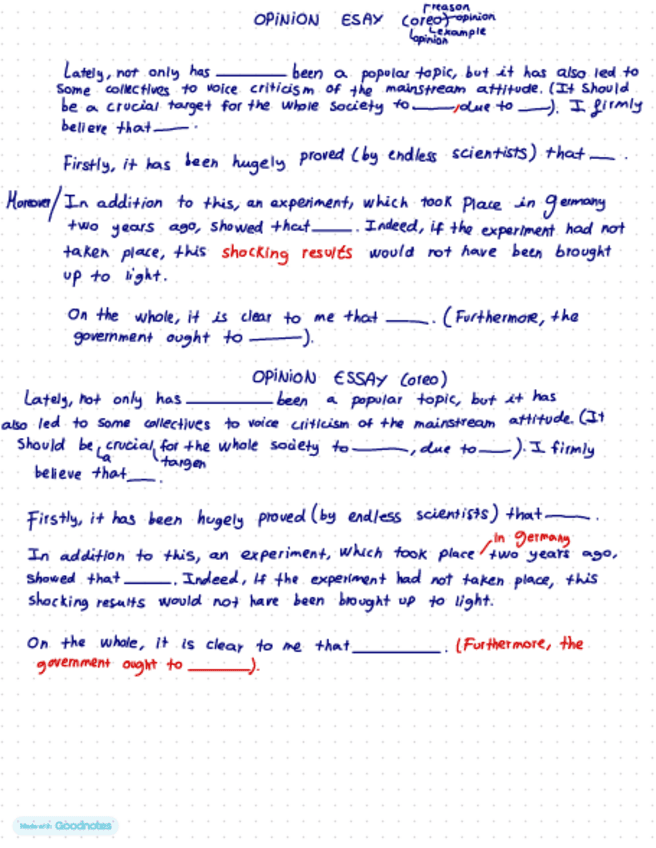 reason
OPINION ESAY (oreo) opinion
example
opinion
Lately, not only has _______ been a popular topic, but it has also led to
some collectives to voice criticism of the mainstream attitude. (It should
be a crucial target for the whole society to _____, due to ____). I firmly
believe that ____.
Firstly, it has been hugely proved (by endless scientists) that ___.
Moreover/ In addition to this, an experiment, which took place in germany
two years ago, showed that ____. Indeed, if the experiment had not
taken place, this shocking results would not have been brought
up to light.
On the whole, it is clear to me that ____. (Furthermore, the
government ought to _____).
OPINION ESSAY (oreo)
Lately, not only has _________ been a popular topic, but it has
also led to some collectives to voice criticism of the mainstream attitude. (It
should be crucial for the whole society to ______, due to ___). I firmly
a targen
believe that ___.
Firstly, it has been hugely proved (by endless scientists) that _____.
in germany
In addition to this, an experiment, which took place / two years ago,
showed that _____. Indeed, if the experiment had not taken place, this
shocking results would not have been brought up to light.
On the whole, it is clear to me that _________. (Furthermore, the
government ought to _______).
Made with Goodnotes